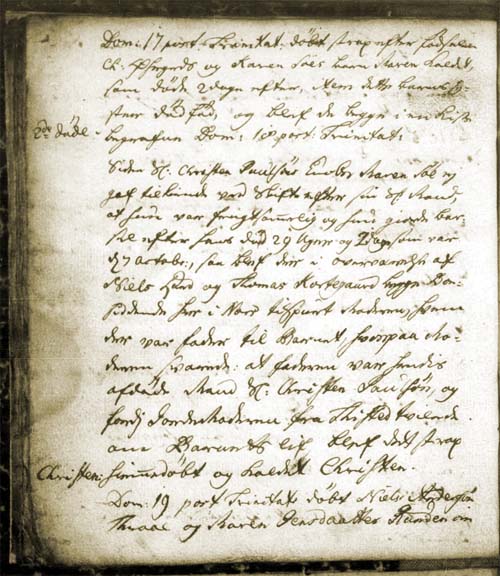 Dom: 17 post Trinitat: döbt strax efter fødselen
Chr: og Karen barn Maren kaldet,
som døde 2 dage efter, item dette barns Sy-
ster död fød, og blef de begge i en Kiste
2de døde
begrafven Dom: 18 post: Trinitat:
Siden Sl: Christen Paulsøns Encke Maren
gaf tilkiende ved Skiftet efter sin Sl: Mand,
at hun var frugtsommelig og hun giorde bar-
sel efter hans død 29 Uger og 2 dage, som var
d. 7 octobr:, saa blef der i overværelse af
Niels og Thomas Kortegaard begge Boe-
siddende her i Nors tilspurt Moderen, hvem
der var fader til Barnet, hvorpaa Mo-
deren svarede: at faderen var hendis
afdøde Mand Sl: Christen Paulsøn, og
fordi Jordemoderen fra Thisted tvilede
om Barnets lif blef dett strax
Christen: hiemmedøbt og kaldet Christen.
Dom: 19 post Trinitat: döbt Niels Andersøn
Thraae og Maren Jensdaatter